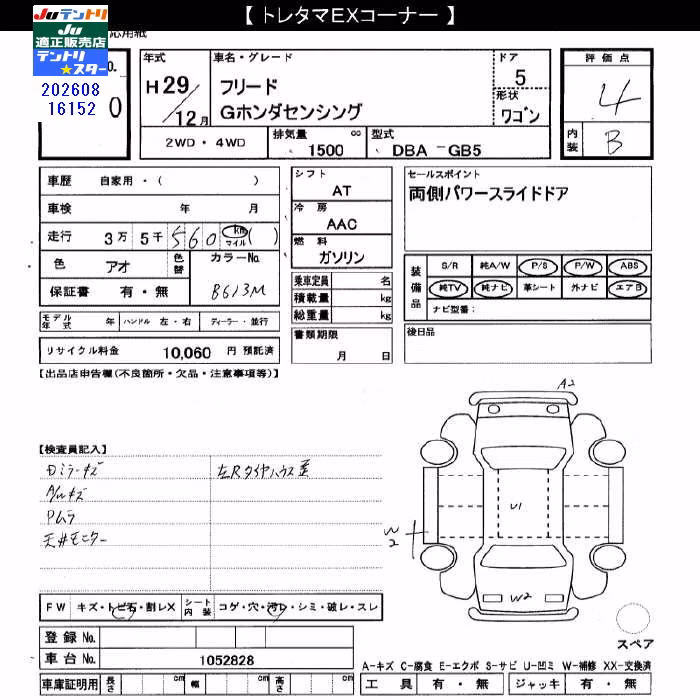 【 トレタマEXコーナー 】
Juテントリ
Ju
適正販売店
テントリ
★スター
応用紙
No.
202608
16152
0
年式
H29/12月
車名・グレード
フリード
Gホンダセンシング
ドア
5
形状
ワゴン
評価点
4
内装
B
2WD・4WD
排気量 cc
1500
型式
DBA - GB5
車歴 自家用・( )
車検 年 月
走行 3万 5千 560 km マイル ( )
色 アオ
色替
カラーNo.
B613M
保証書 有・無
シフト
AT
冷房
AAC
燃料
ガソリン
乗車定員 名
積載量 kg
総重量 kg
セールスポイント
両側パワースライドドア
装備品
S/R 純A/W P/S P/W ABS
純TV 純ナビ 革シート 外ナビ エアB
ナビ型番:
モデル年式 年 ハンドル 左・右 ディーラー・並行
リサイクル料金 10,060 円 預託済
書類期限
月 日
後日品
【出品店申告欄(不良箇所・欠品・注意事項等)】
【検査員記入】
Dミラーキズ
左Rタイヤハウス歪
A/Wキズ
Pムラ
天井モニター
A2
U1
W2
W2
FW キズ・トビ石・割レX
シート内装 コゲ・穴・汚レ・シミ・破レ・スレ
登録No.
車台No. 1052828
スペア
A-キズ C-腐食 E-エクボ S-サビ U-凹ミ W-補修 XX-交換済
車庫証明用 長さ cm 幅 cm 高さ cm
工具 有・無 ジャッキ 有・無